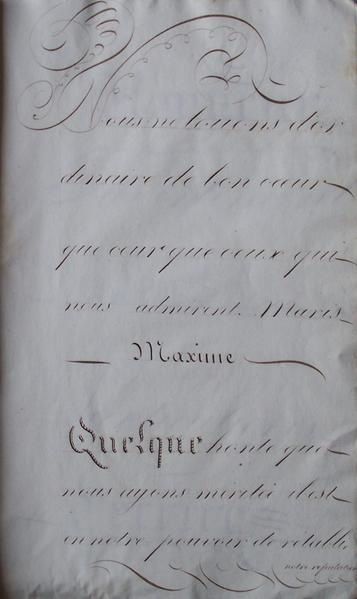 Nous ne louons d'or
dinaire de bon cœur
que cœur que ceux qui
nous admirent. Maris
Maxime
Quelque honte que
nous ayons méritée il est
en notre pouvoir de rétablir
notre réputation